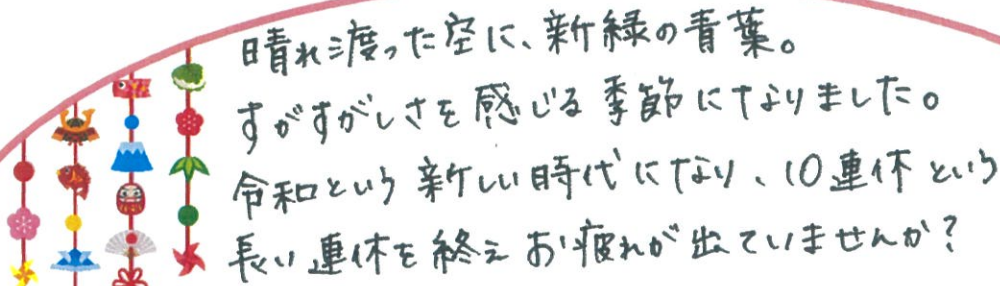 晴れ渡った空に、新緑の青葉。
すがすがしさを感じる季節になりました。
令和という新しい時代になり、10連休という
長い連休を終えお疲れが出ていませんか？